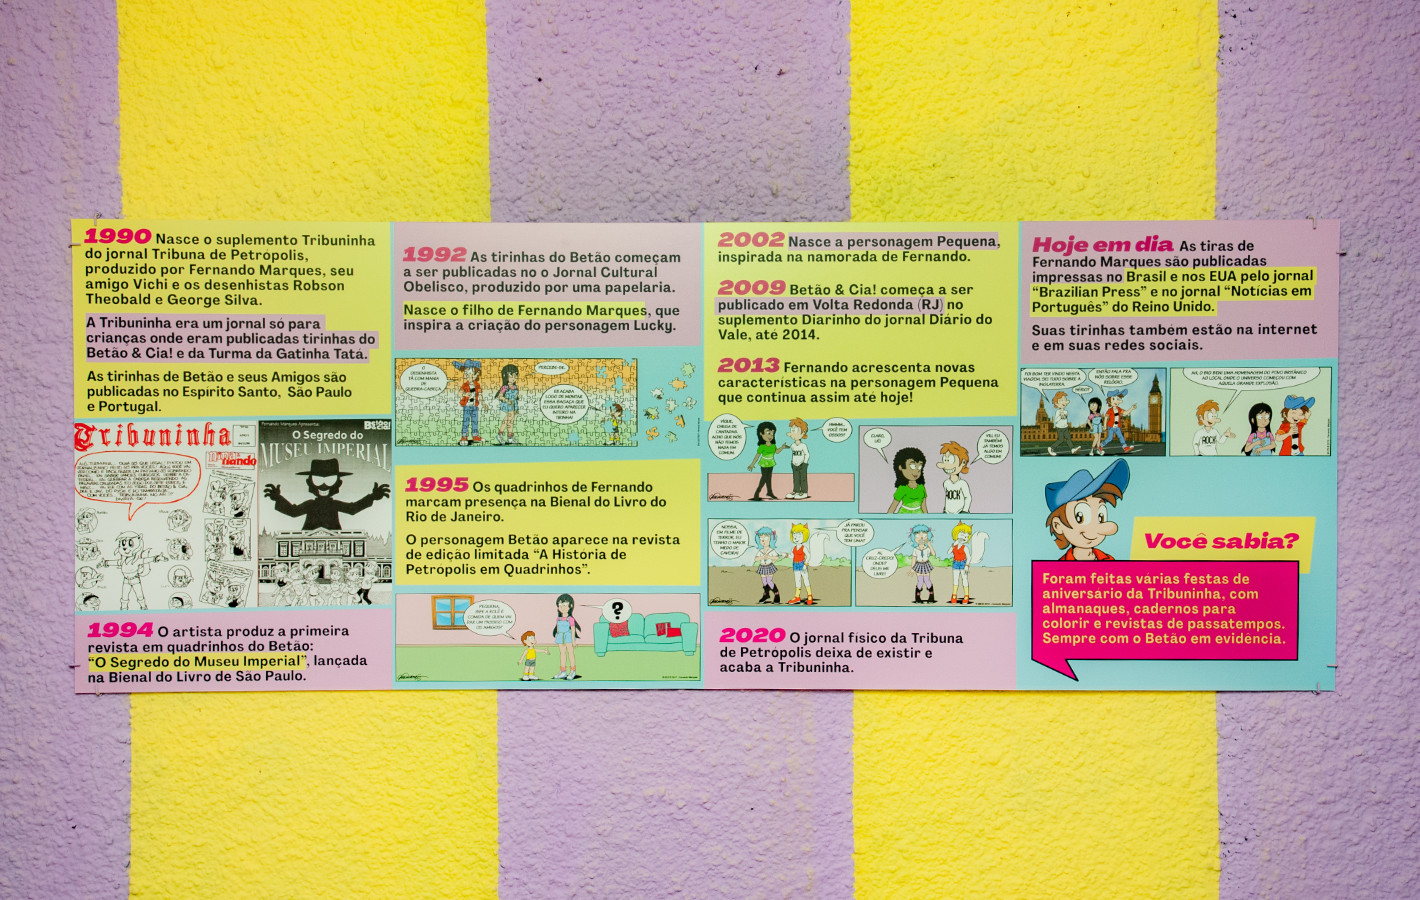 1990 Nasce o suplemento Tribuninha
do jornal Tribuna de Petrópolis,
produzido por Fernando Marques, seu
amigo Vichi e os desenhistas Robson
Theobald e George Silva.
A Tribuninha era um jornal só para
crianças onde eram publicadas tirinhas do
Betão & Cia! e da Turma da Gatinha Tatá.
As tirinhas de Betão e seus Amigos são
publicadas no Espírito Santo, São Paulo
e Portugal.
Tribuninha
Fernando Marques Apresenta:
Betão!
O Segredo do
MUSEU IMPERIAL
1994 O artista produz a primeira
revista em quadrinhos do Betão:
“O Segredo do Museu Imperial”, lançada
na Bienal do Livro de São Paulo.
1992 As tirinhas do Betão começam
a ser publicadas no o Jornal Cultural
Obelisco, produzido por uma papelaria.
Nasce o filho de Fernando Marques, que
inspira a criação do personagem Lucky.
O
DESENHISTA
TÁ COM MANIA
DE
QUEBRA-CABEÇA.
PERCEBI-SE.
1995 Os quadrinhos de Fernando
marcam presença na Bienal do Livro do
Rio de Janeiro.
O personagem Betão aparece na revista
de edição limitada “A História de
Petrópolis em Quadrinhos”.
?
2002 Nasce a personagem Pequena,
inspirada na namorada de Fernando.
2009 Betão & Cia! começa a ser
publicado em Volta Redonda (RJ) no
suplemento Diarinho do jornal Diário do
Vale, até 2014.
2013 Fernando acrescenta novas
características na personagem Pequena
que continua assim até hoje!
HMMM...
VOCÊ TEM
OSSOS!
ROCK
CLARO,
UÉ!
VIU, EU
TAMBÉM!
JÁ TEMOS
ALGO EM
COMUM!
ROCK
NOSSA,
EM FILME DE
TERROR, EU
TENHO O MAIOR
MEDO DE
CAVEIRA!
JÁ PAROU
PRA PENSAR
QUE VOCÊ
TEM UMA?
2020 O jornal físico da Tribuna
de Petrópolis deixa de existir e
acaba a Tribuninha.
Hoje em dia As tiras de
Fernando Marques são publicadas
impressas no Brasil e nos EUA pelo jornal
“Brazilian Press” e no jornal “Notícias em
Português” do Reino Unido.
Suas tirinhas também estão na internet
e em suas redes sociais.
ROCK
Você sabia?
Foram feitas várias festas de
aniversário da Tribuninha, com
almanaques, cadernos para
colorir e revistas de passatempos.
Sempre com o Betão em evidência.